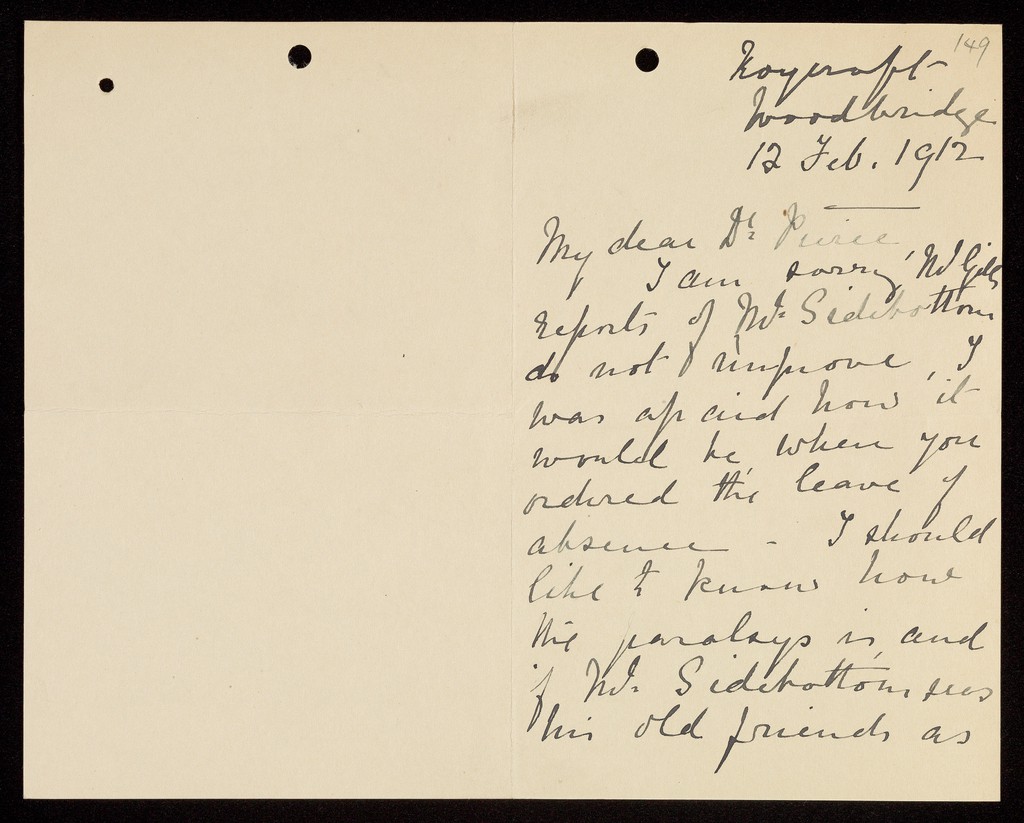 149
Woodbridge
12 Feb. 1912
My dear Dr. Pierce
I am sorry, Mr Gill's
reports of Mr. Sidebottom
do not improve, I
was afraid how it
would be when you
ordered the leave of
absence - I should
like to know how
the paralsys is, and
if Mr. Sidebottom sees
his old friends as